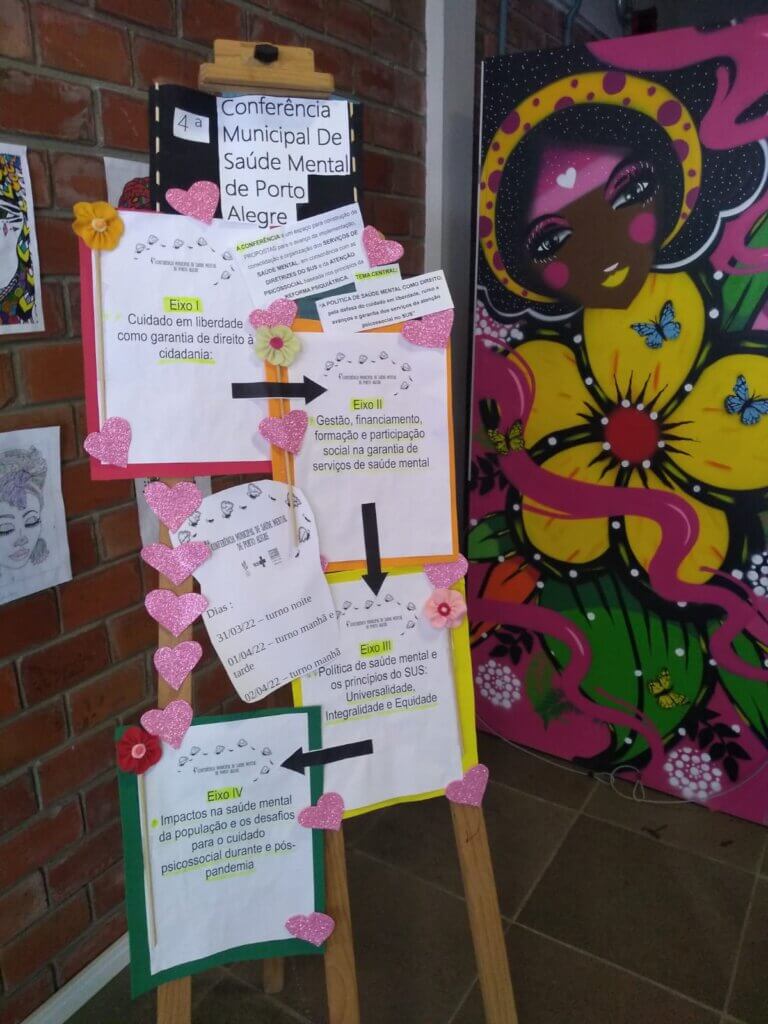 4ª
Conferência
Municipal De
Saúde Mental
de Porto
Alegre
A CONFERÊNCIA é um espaço para construção de
PROPOSTAS para o avanço da implementação,
continuação e organização dos SERVIÇOS DE
SAÚDE MENTAL, em consonância com as
DIRETRIZES DO SUS e da ATENÇÃO
PSICOSSOCIAL, baseada nos princípios da
REFORMA PSIQUIÁTRICA.
TEMA CENTRAL:
"A POLÍTICA DE SAÚDE MENTAL COMO DIREITO:
pela defesa do cuidado em liberdade, rumo a
avanços e garantia dos serviços da atenção
psicossocial no SUS"
CONFERÊNCIA MUNICIPAL DE SAÚDE MENTAL
DE PORTO ALEGRE
Eixo I
Cuidado em liberdade
como garantia de direito à
cidadania:
CONFERÊNCIA MUNICIPAL DE SAÚDE MENTAL
DE PORTO ALEGRE
Eixo II
Gestão, financiamento,
formação e participação
social na garantia de
serviços de saúde mental
CONFERÊNCIA MUNICIPAL DE SAÚDE MENTAL
DE PORTO ALEGRE
Dias :
31/03/22 – turno noite
01/04/22 – turno manhã e
tarde
02/04/22 – turno manhã
CONFERÊNCIA MUNICIPAL DE SAÚDE MENTAL
DE PORTO ALEGRE
Eixo III
Política de saúde mental e
os princípios do SUS:
Universalidade,
Integralidade e Equidade
CONFERÊNCIA MUNICIPAL DE SAÚDE MENTAL
DE PORTO ALEGRE
Eixo IV
Impactos na saúde mental
da população e os desafios
para o cuidado
psicossocial durante e pós-
pandemia